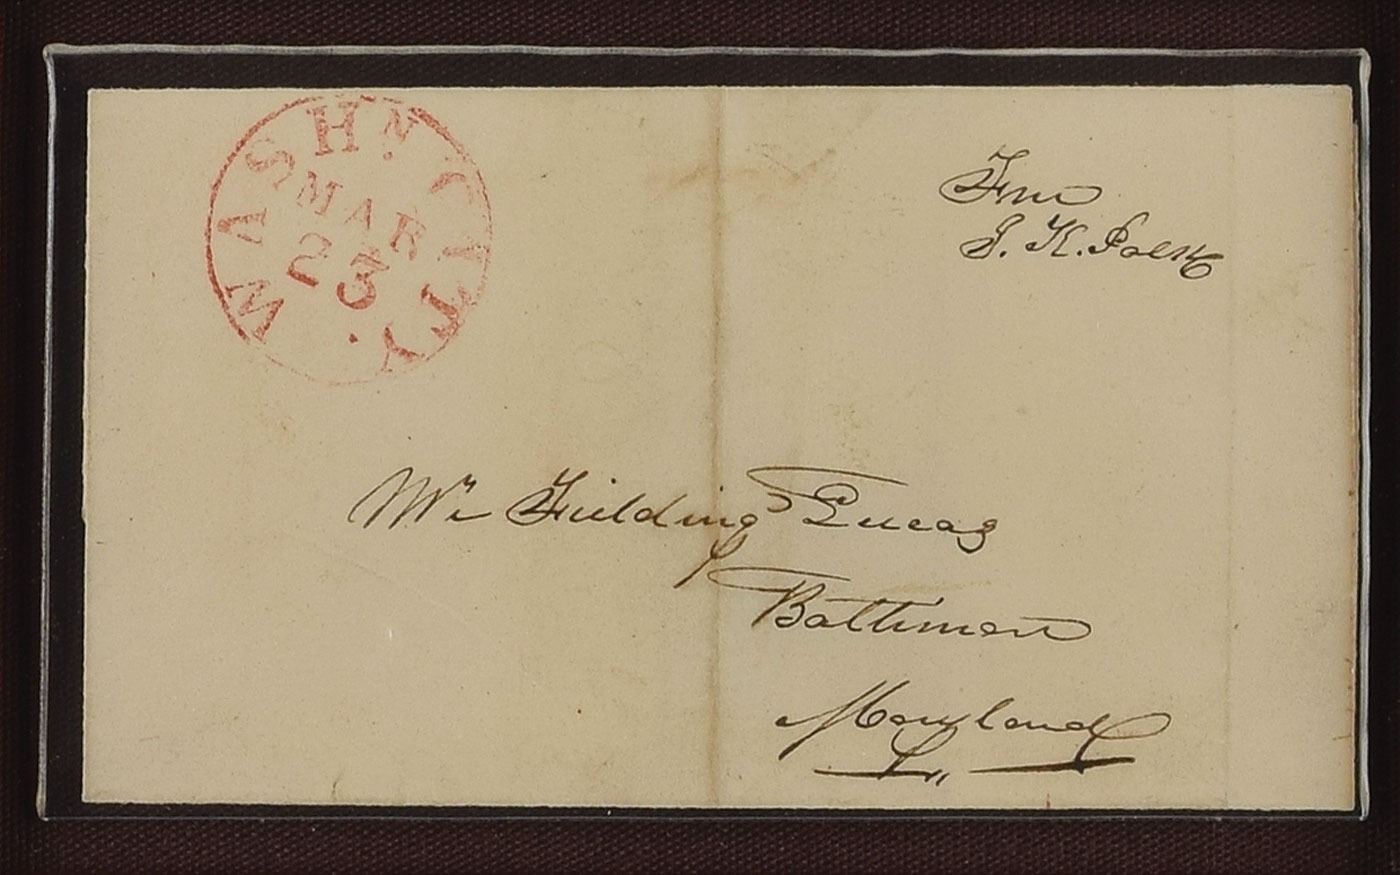 WASHN. CITY.
MAR
23
Free
J. K. Polk
Mr Fielding Lucas
Baltimore
Maryland